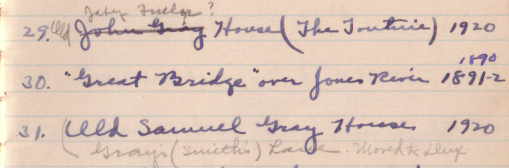 29. Old John Gray House (The         ) 1920
1890
30. "Great Bridge" over Jones River 1891-2
31. Old Samuel Gray House 1920
Grays (Smith's) Lane. Moved to